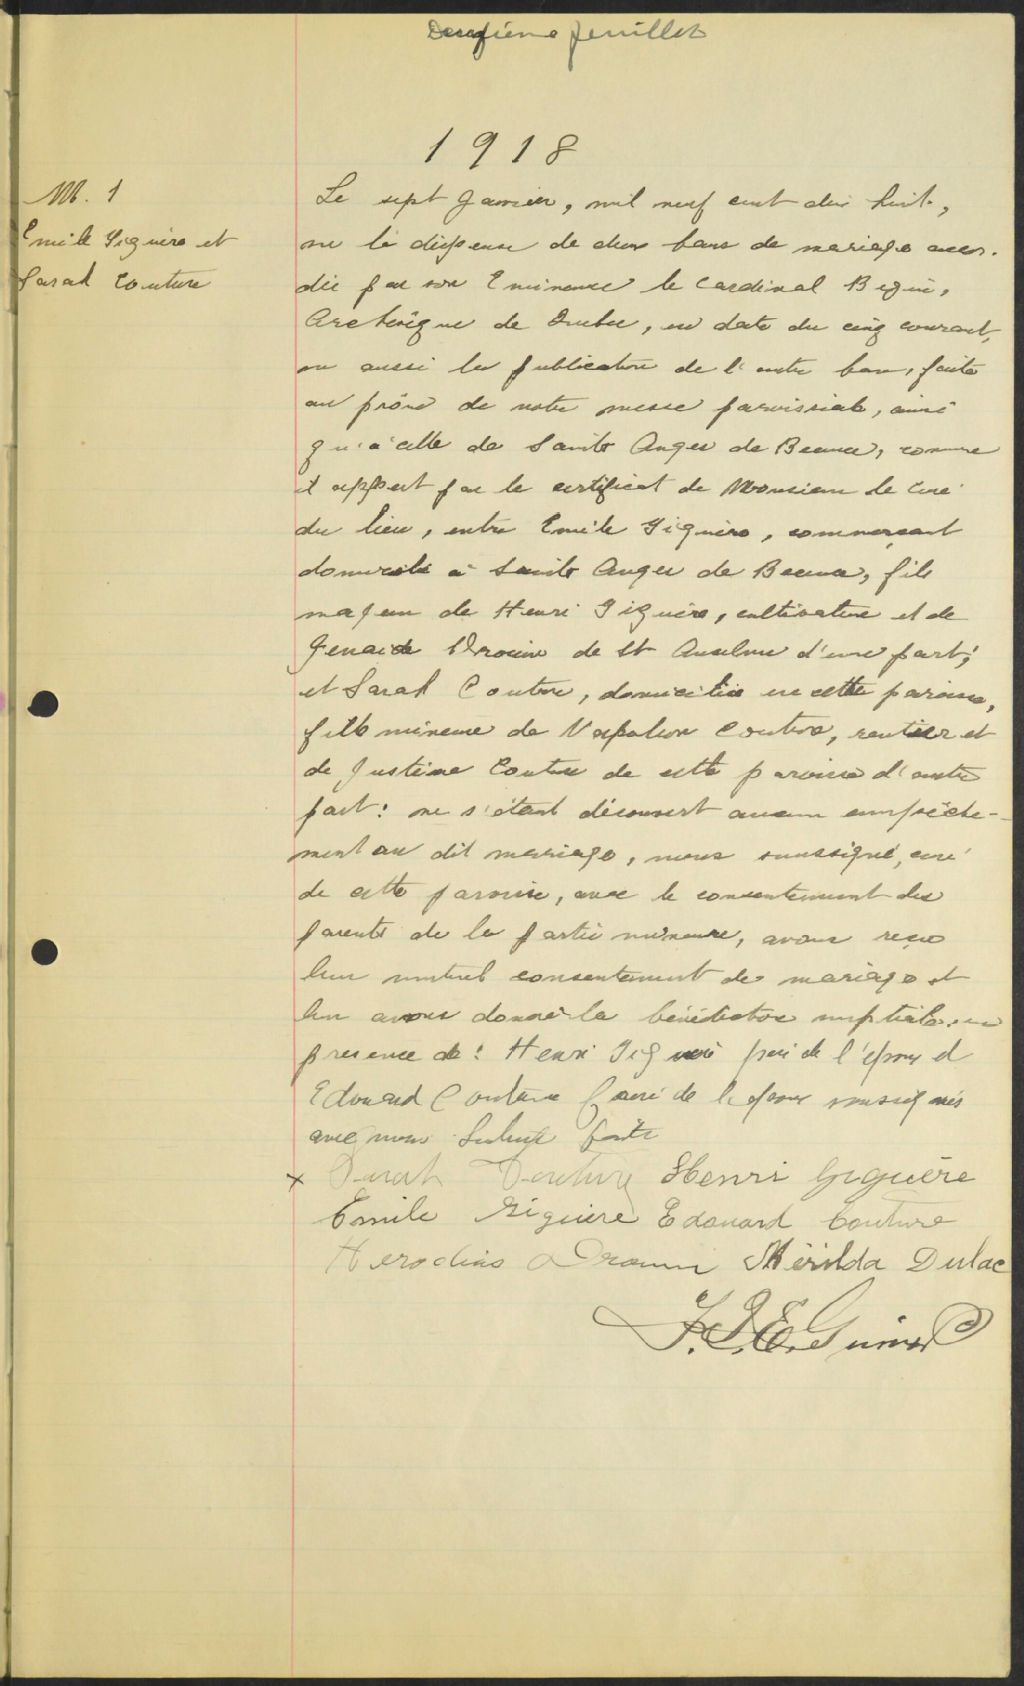 Deuxième feuillet
1918
M. 1
Emile Giguère et
Sarah Couture
Le sept Janvier, mil neuf cent dix huit,
vu la dispense de deux bans de mariage accor-
dée par son Eminence le Cardinal Bégin,
Archevêque de Québec, en date du cinq courant,
vu aussi la publication de l'autre ban, faite
au prône de notre messe paroissiale, ainsi
qu'à celle de Sainte Anges de Beauce, comme
il appert par le certificat de Monsieur le Curé
du lieu, entre Emile Giguère, commerçant
domicilié à Sainte Anges de Beauce, fils
majeur de Henri Giguère, cultivateur et de
Drouin de St Anselme d'une part;
et Sarah Couture, domiciliée en cette paroisse,
fille mineure de Napoléon Couture, rentier et
de Justine Couture de cette paroisse d'autre
part: ne s'étant découvert aucun empêche-
ment au dit mariage, nous soussigné, curé
de cette paroisse, avec le consentement des
parents de la partie mineure, avons reçu
leur mutuel consentement de mariage et
leur avons donné la bénédiction nuptiale en
présence de: Henri Giguère père de l'époux et
Edouard Couture frère de l'épouse soussignés
avec nous lecture faite
x Sarah Couture Henri Giguère
Emile Giguère Edouard Couture
Herodias Drouin Mérilda Dulac